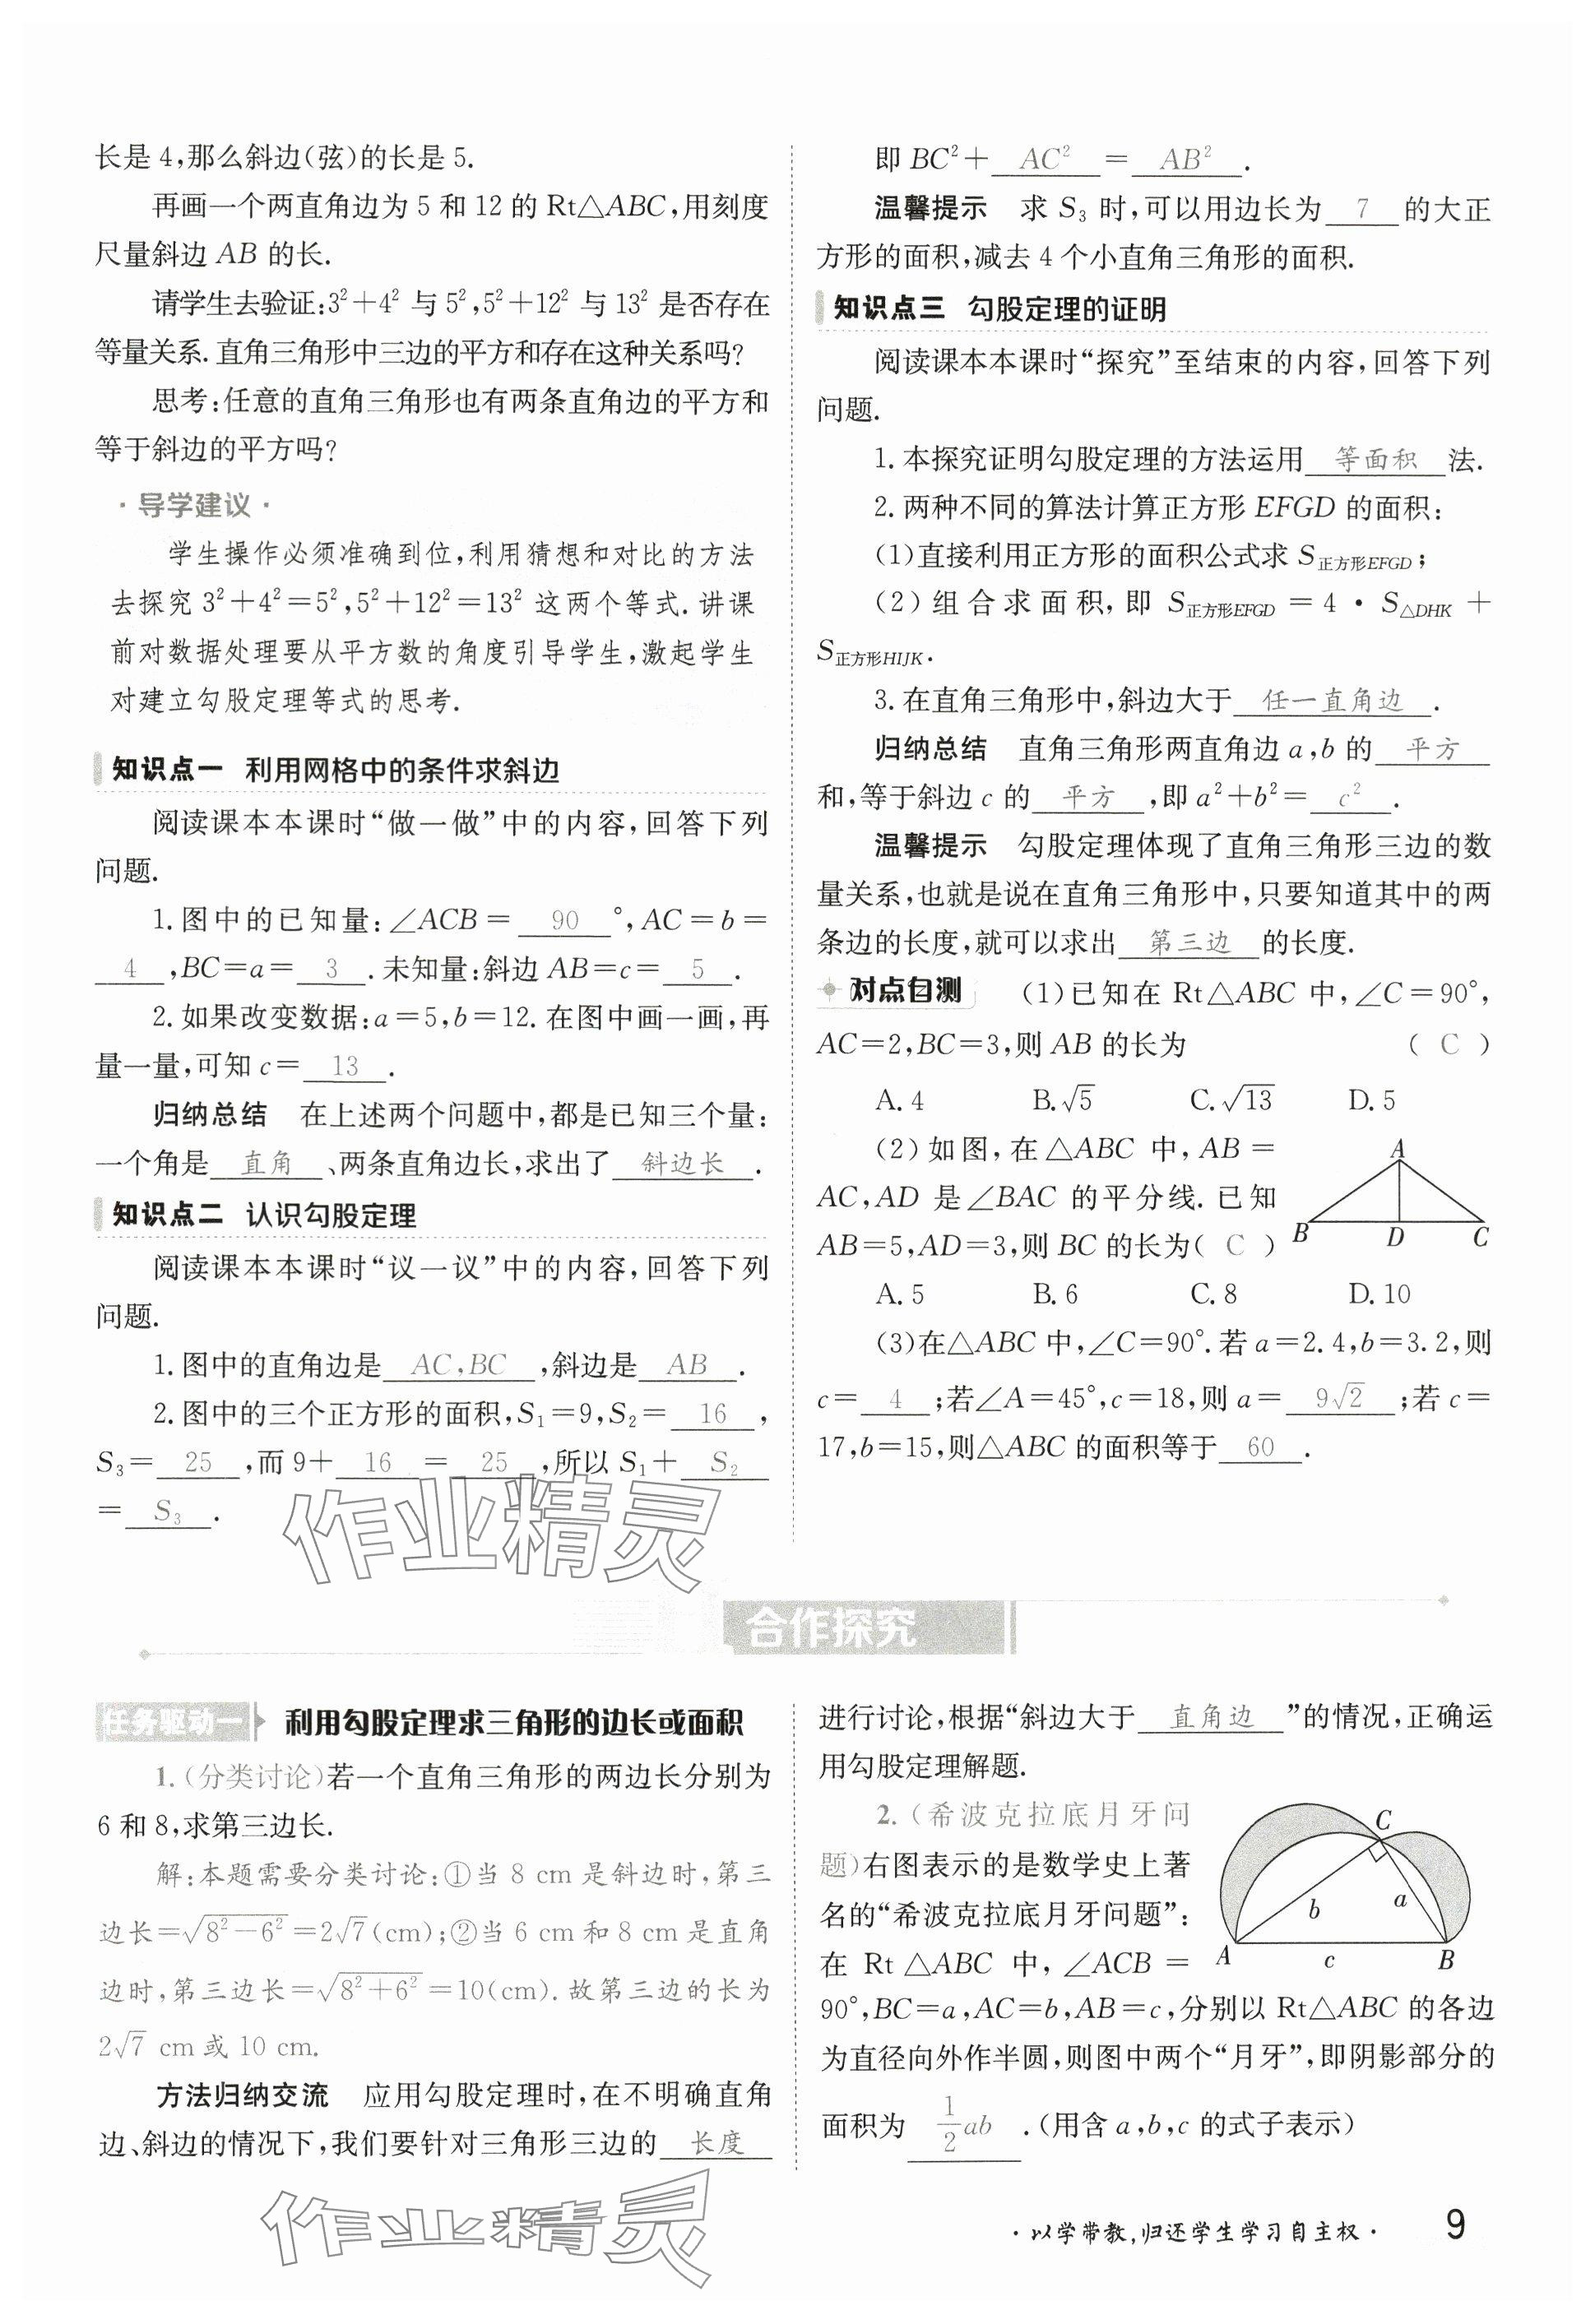 长是 4,那么斜边(弦)的长是 5.
再画一个两直角边为 5 和 12 的 Rt△ABC,用刻度
尺量斜边 AB 的长.
请学生去验证:3²+4² 与 5²,5²+12² 与 13² 是否存在
等量关系.直角三角形中三边的平方和存在这种关系吗?
思考:任意的直角三角形也有两条直角边的平方和
等于斜边的平方吗?
·导学建议·
学生操作必须准确到位,利用猜想和对比的方法
去探究 3²+4²=5²,5²+12²=13² 这两个等式.讲课
前对数据处理要从平方数的角度引导学生,激起学生
对建立勾股定理等式的思考.
知识点一 利用网格中的条件求斜边
阅读课本本课时“做一做”中的内容,回答下列
问题.
1.图中的已知量:∠ACB= 90 °,AC=b=
4 ,BC=a= 3 .未知量:斜边 AB=c= 5 .
2.如果改变数据:a=5,b=12.在图中画一画,再
量一量,可知 c= 13 .
归纳总结 在上述两个问题中,都是已知三个量:
一个角是 直角 、两条直角边长,求出了 斜边长 .
知识点二 认识勾股定理
阅读课本本课时“议一议”中的内容,回答下列
问题.
1.图中的直角边是 AC,BC ,斜边是 AB .
2.图中的三个正方形的面积,S₁=9,S₂= 16 ,
S₃= 25 ,而 9+ 16 = 25 ,所以 S₁+ S₂
= S₃ .
即 BC²+ AC² = AB² .
温馨提示 求 S₃ 时,可以用边长为 7 的大正
方形的面积,减去 4 个小直角三角形的面积.
知识点三 勾股定理的证明
阅读课本本课时“探究”至结束的内容,回答下列
问题.
1.本探究证明勾股定理的方法运用 等面积 法.
2.两种不同的算法计算正方形 EFGD 的面积:
(1)直接利用正方形的面积公式求 S正方形EFGD;
(2)组合求面积,即 S正方形EFGD = 4 · S△DHK +
S正方形HIJK.
3.在直角三角形中,斜边大于 任一直角边 .
归纳总结 直角三角形两直角边 a,b 的 平方
和,等于斜边 c 的 平方 ,即 a²+b²= c² .
温馨提示 勾股定理体现了直角三角形三边的数
量关系,也就是说在直角三角形中,只要知道其中的两
条边的长度,就可以求出 第三边 的长度.
对点自测 (1)已知在 Rt△ABC 中,∠C=90°,
AC=2,BC=3,则 AB 的长为 ( C )
A.4 B.√5 C.√13 D.5
(2)如图,在△ABC 中,AB=
AC,AD 是∠BAC 的平分线.已知
AB=5,AD=3,则 BC 的长为( C )
A
B D C
A.5 B.6 C.8 D.10
(3)在△ABC 中,∠C=90°.若 a=2.4,b=3.2,则
c= 4 ;若∠A=45°,c=18,则 a= 9√2 ;若 c=
17,b=15,则△ABC 的面积等于 60 .
作业精灵
合作探究
任务驱动一 利用勾股定理求三角形的边长或面积
1.(分类讨论)若一个直角三角形的两边长分别为
6 和 8,求第三边长.
解:本题需要分类讨论:①当 8 cm 是斜边时,第三
边长=√(8²−6²)=2√7(cm);②当 6 cm 和 8 cm 是直角
边时,第三边长=√(8²+6²)=10(cm).故第三边的长为
2√7 cm 或 10 cm.
方法归纳交流 应用勾股定理时,在不明确直角
边、斜边的情况下,我们要针对三角形三边的 长度
进行讨论,根据“斜边大于 直角边 ”的情况,正确运
用勾股定理解题.
2.(希波克拉底月牙问
题)右图表示的是数学史上著
名的“希波克拉底月牙问题”:
在 Rt△ABC 中,∠ACB=
C
b a
A c B
90°,BC=a,AC=b,AB=c,分别以 Rt△ABC 的各边
为直径向外作半圆,则图中两个“月牙”,即阴影部分的
面积为 1/2 ab .(用含 a,b,c 的式子表示)
作业精灵
·以学带教,归还学生学习自主权·
9